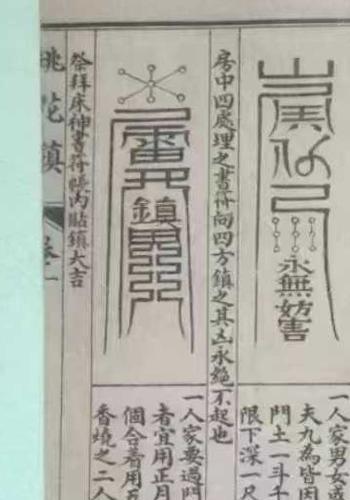 永無妨害
一人家男女或
夫九為皆因
門土一斗千
限下深一尺
房中四處理之書符向四方鎮之其凶永絕不起也
鎮
一人家要過門
者宜用正月
個合着用五
香燒之二人
祭拜床神書符帳內貼鎮大吉
桃花鎮